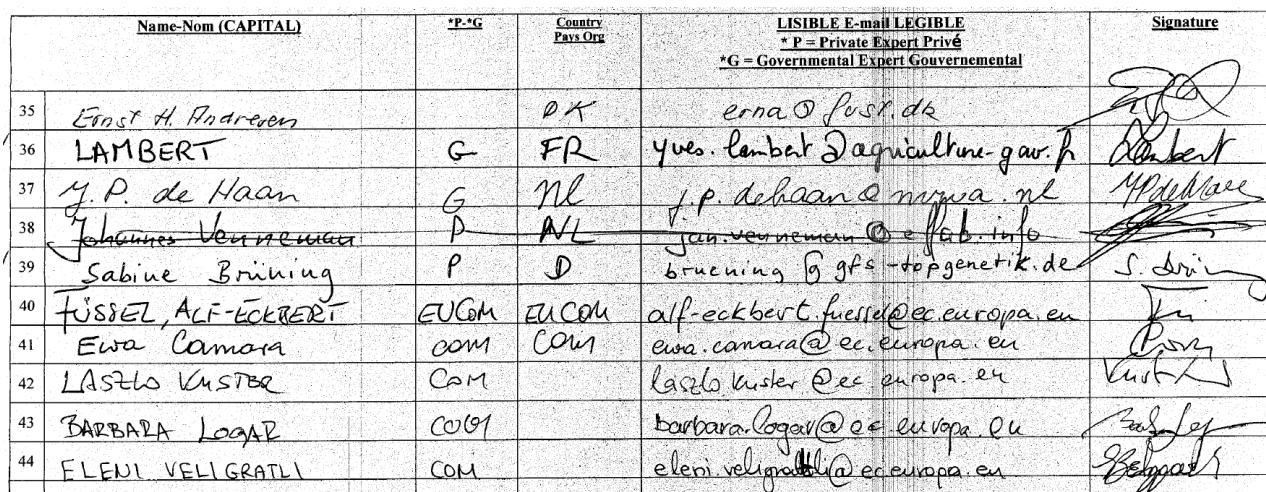 Name-Nom (CAPITAL) *P-*G Country Pays Org LISIBLE E-mail LEGIBLE Signature
* P = Private Expert Privé
*G = Governmental Expert Gouvernemental
35 Ernst H. Andresen DK erna@fust.dk
36 LAMBERT G FR yves.lambert@agriculture-gouv.fr Lambert
37 J.P. de Haan G NL j.p.dehaan@nvwa.nl JPdeHaan
38 Johannes Venneman P NL jan.venneman@effab.info
39 Sabine Brüning P D bruening@gfs-topgenetik.de
40 FÜSSEL, ALF-ECKBERT EUCOM EUCOM alf-eckbert.fuessel@ec.europa.eu
41 Ewa Camara COM COM ewa.camara@ec.europa.eu
42 LASZLO KUSTER COM laszlo.kuster@ec.europa.eu
43 BARBARA LOGAR COM barbara.logar@ec.europa.eu
44 ELENI VELIGRATLI COM eleni.veligratli@ec.europa.eu